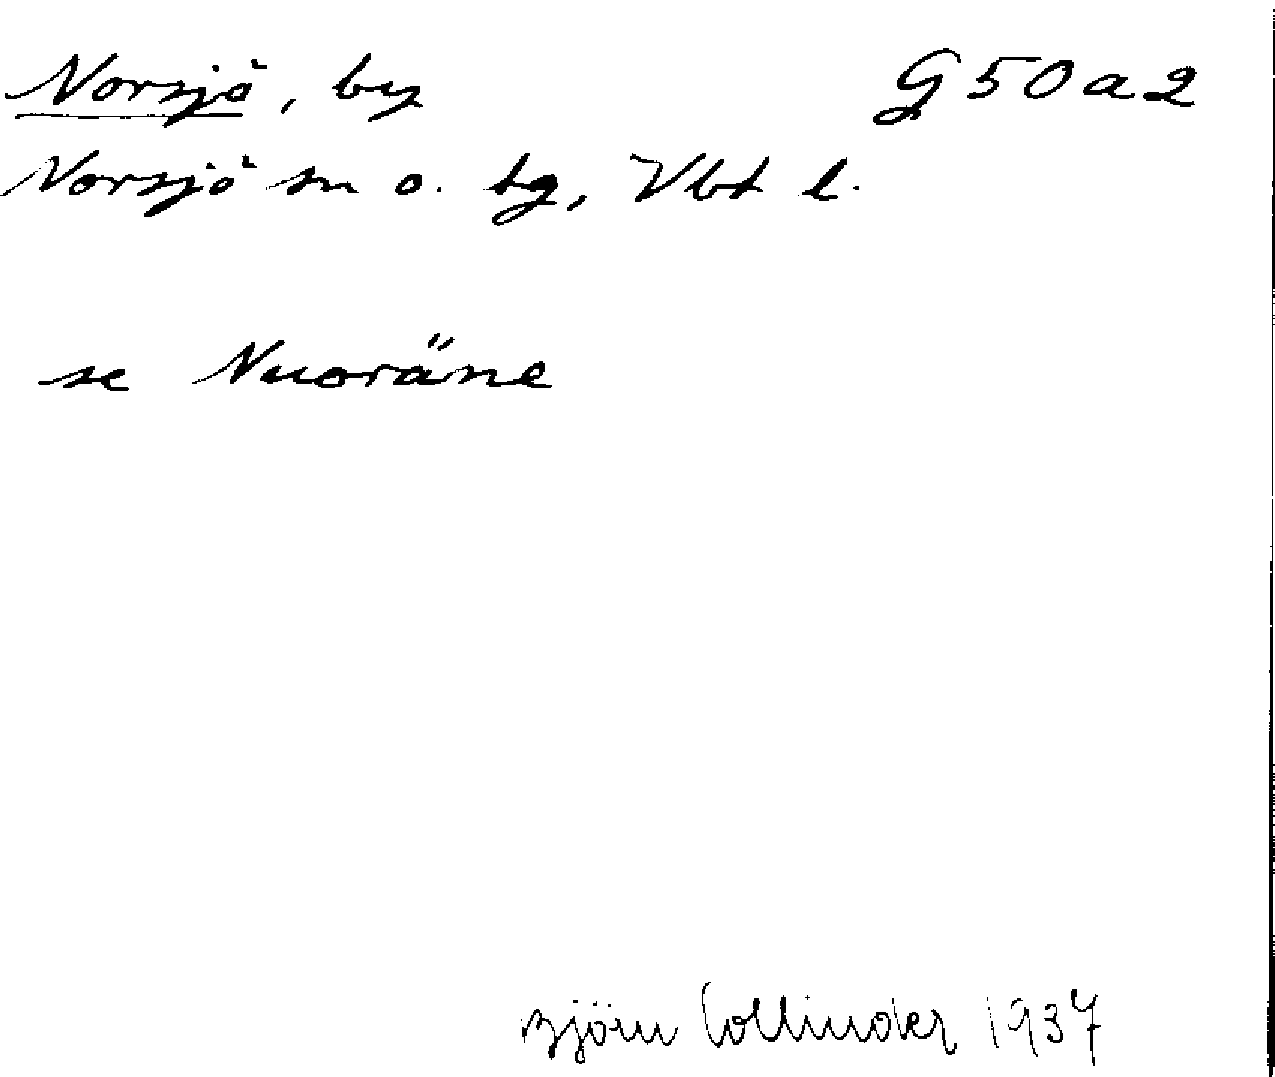 Norsjö, by G50a2
Norsjö sn o. tg, Vbt l.
se Nuoräne
Björn Collinder 1937